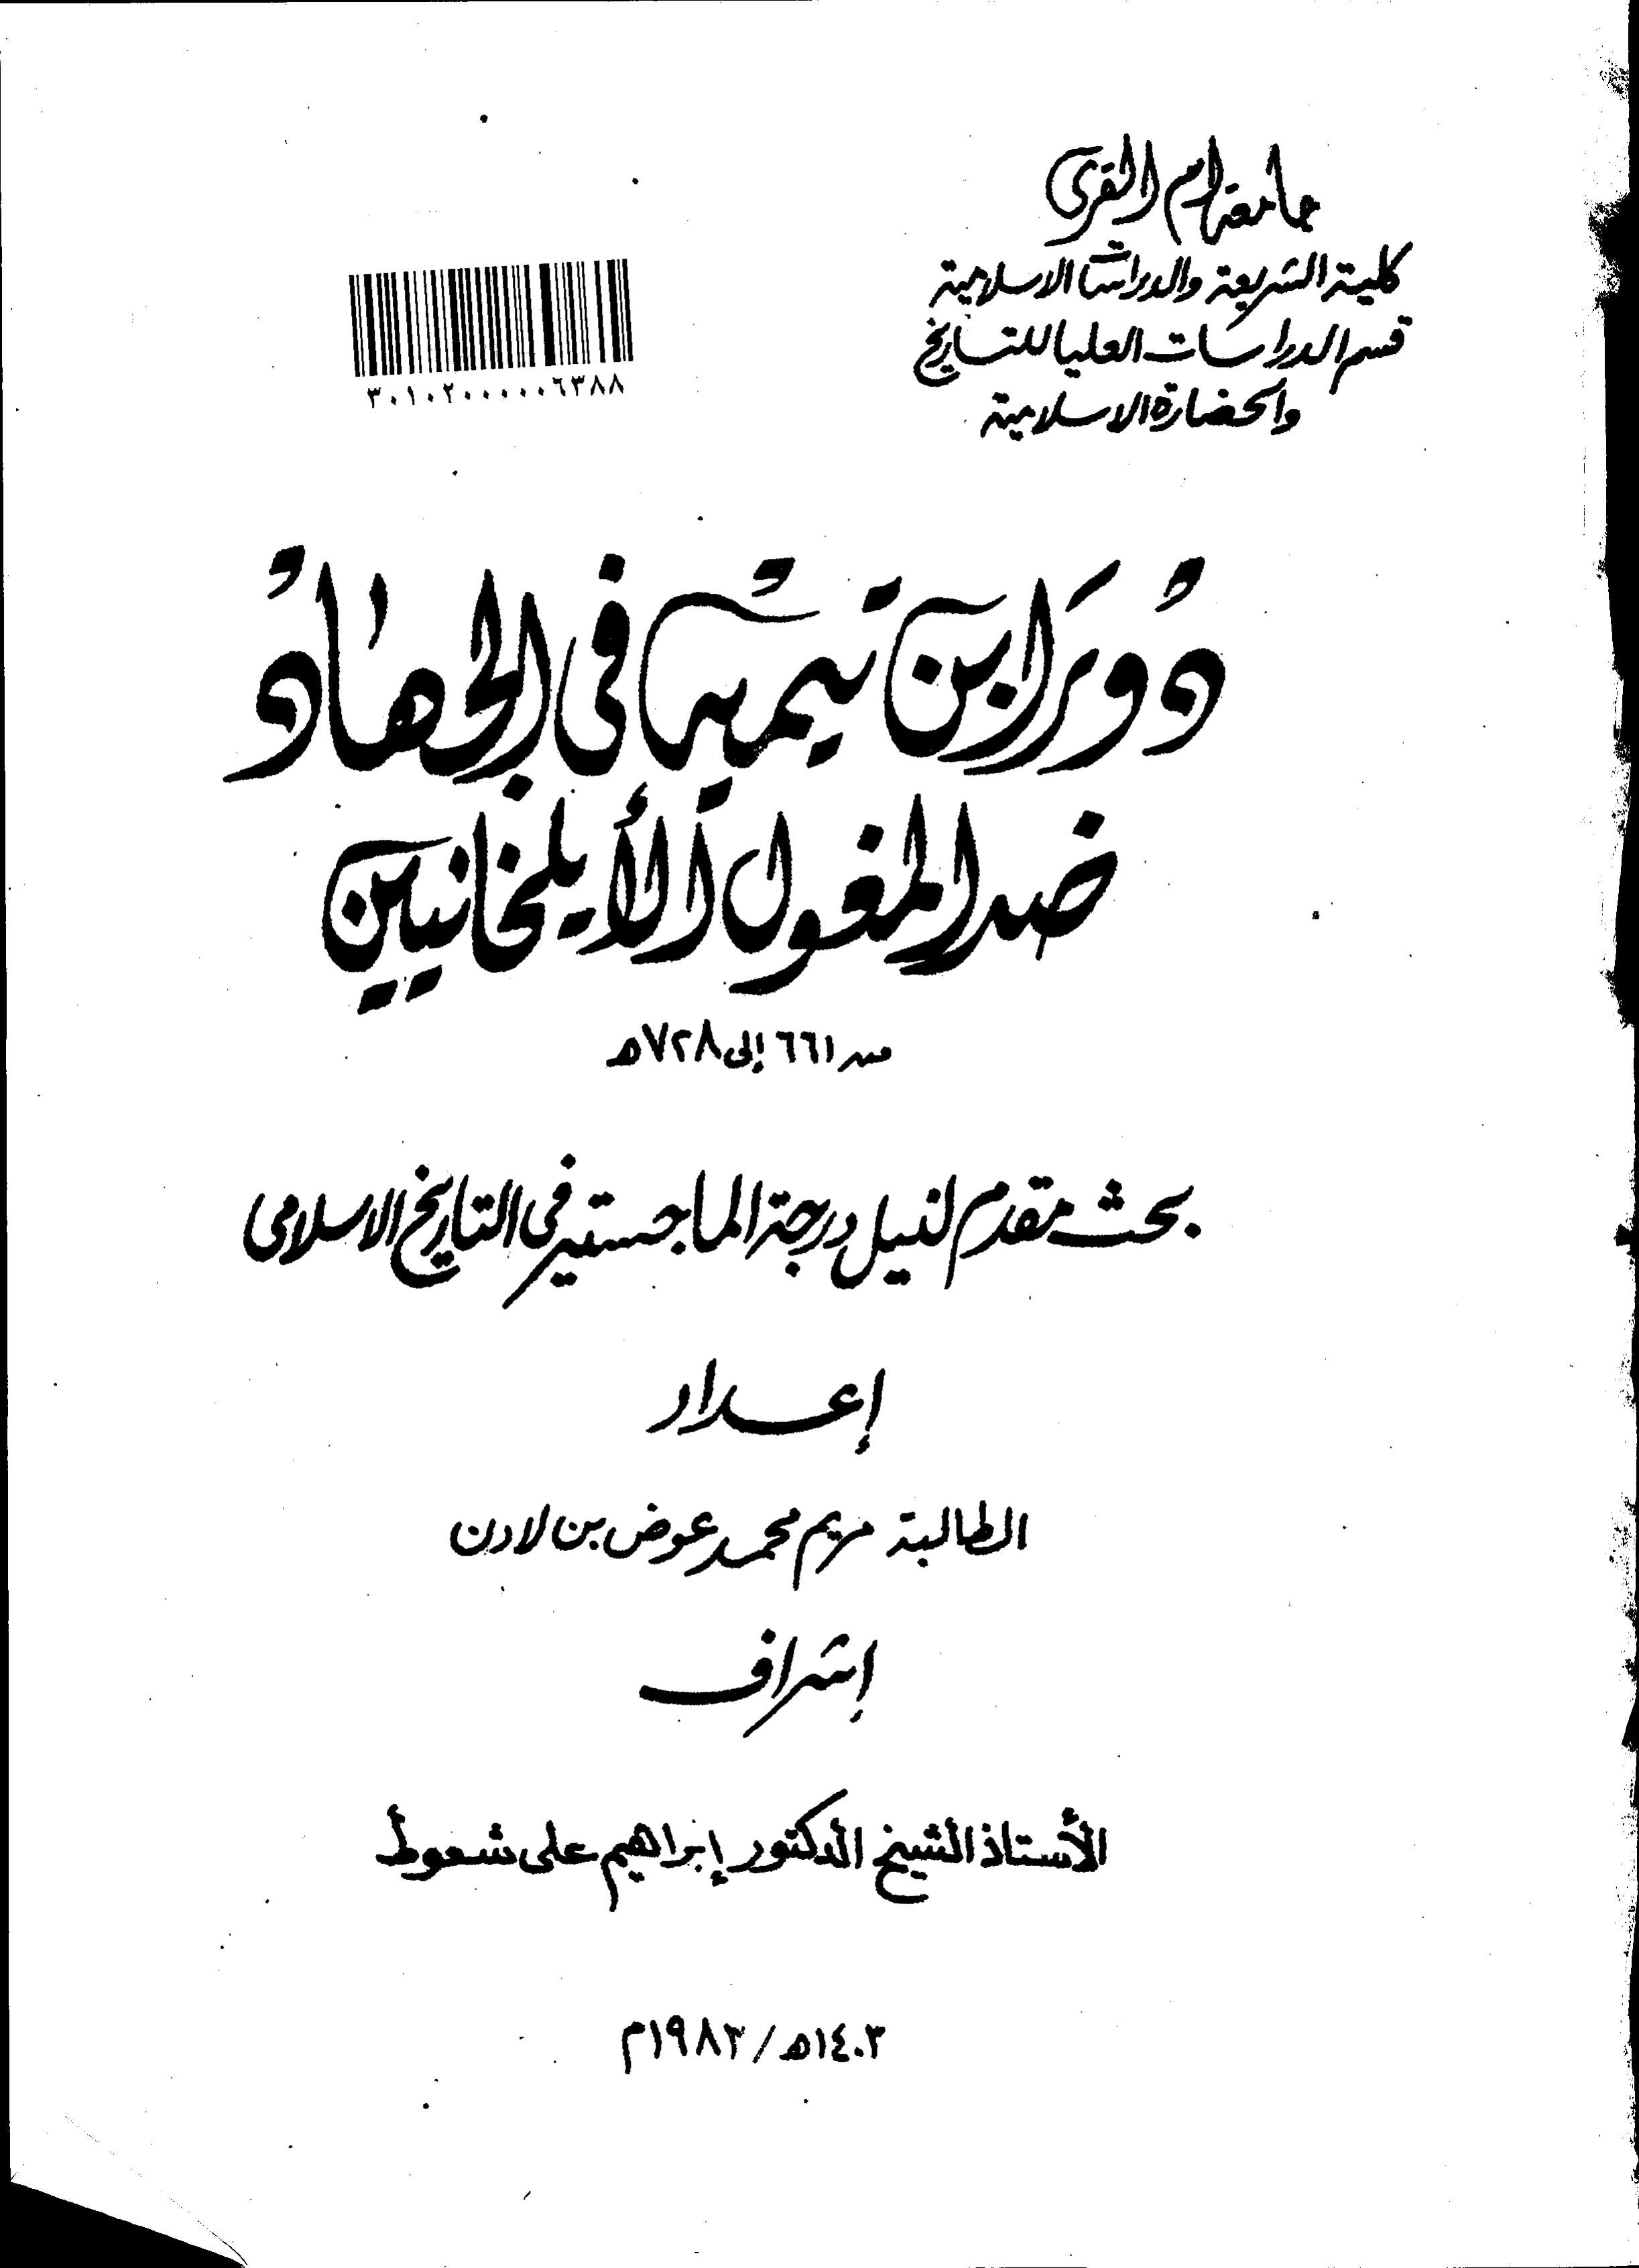 جامعة ام القرى
كلية الشريعة والدراسات الاسلامية
قسم الدراسات العليا للتاريخ
والحضارة الاسلامية
٣٠١٠٢٠٠٠٠٠٦٣٨٨
دور ابن تيمية في الجهاد
ضد المغول الأيلخانيين
من ٦٦١ إلى ٧٢٨ه
بحث مقدم لنيل درجة الماجستير في التاريخ الاسلامى
إعداد
الطالبة مريم محمد عوض بن لادن
إشراف
الأستاذ الشيخ الدكتور إبراهيم على شعوط
١٤٠٣ه/ ١٩٨٣م